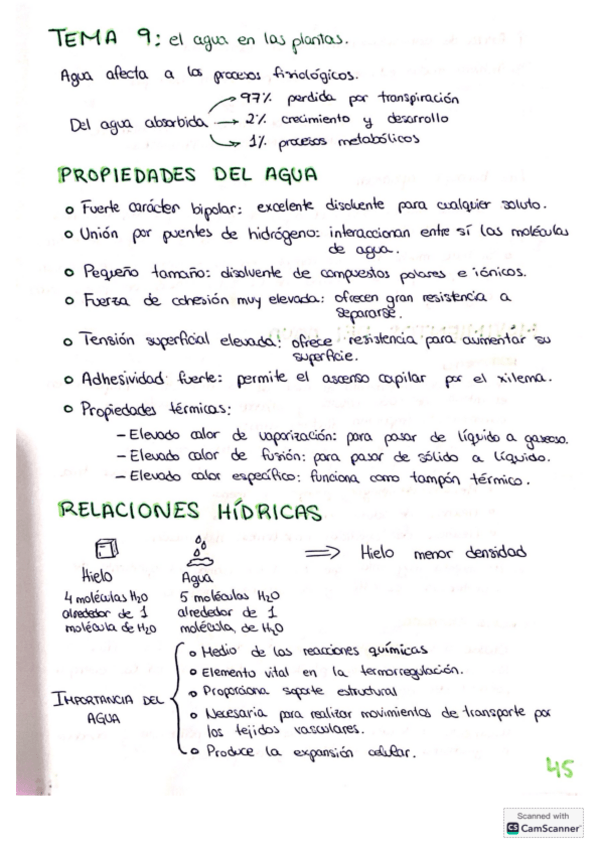 TEMA 9: el agua en las plantas.
Agua afecta a los procesos fisiológicos.
→ 97% perdida por transpiración
Del agua absorbida → 2% crecimiento y desarrollo
→ 1% procesos metabólicos
PROPIEDADES DEL AGUA
o Fuerte carácter bipolar: excelente disolvente para cualquier soluto.
o Unión por puentes de hidrógeno: interaccionan entre sí las moléculas
de agua.
o Pequeño tamaño: disolvente de compuestos polares e iónicos.
o Fuerza de cohesión muy elevada: ofrecen gran resistencia a
separarse.
o Tensión superficial elevada: ofrece resistencia para aumentar su
superficie.
o Adhesividad fuerte: permite el ascenso capilar por el xilema.
o Propiedades térmicas:
- Elevado calor de vaporización: para pasar de líquido a gaseoso.
- Elevado calor de fusión: para pasar de sólido a líquido.
- Elevado calor específico: funciona como tampón térmico.
RELACIONES HÍDRICAS
⇒ Hielo menor densidad
Hielo Agua
4 moléculas H2O 5 moléculas H2O
alrededor de 1 alrededor de 1
molécula de H2O molécula de H2O
o Medio de las reacciones químicas
o Elemento vital en la termorregulación.
IMPORTANCIA DEL AGUA
o Proporciona soporte estructural
o Necesaria para realizar movimientos de transporte por
los tejidos vasculares.
o Produce la expansión celular.
45
Scanned with
CS CamScanner